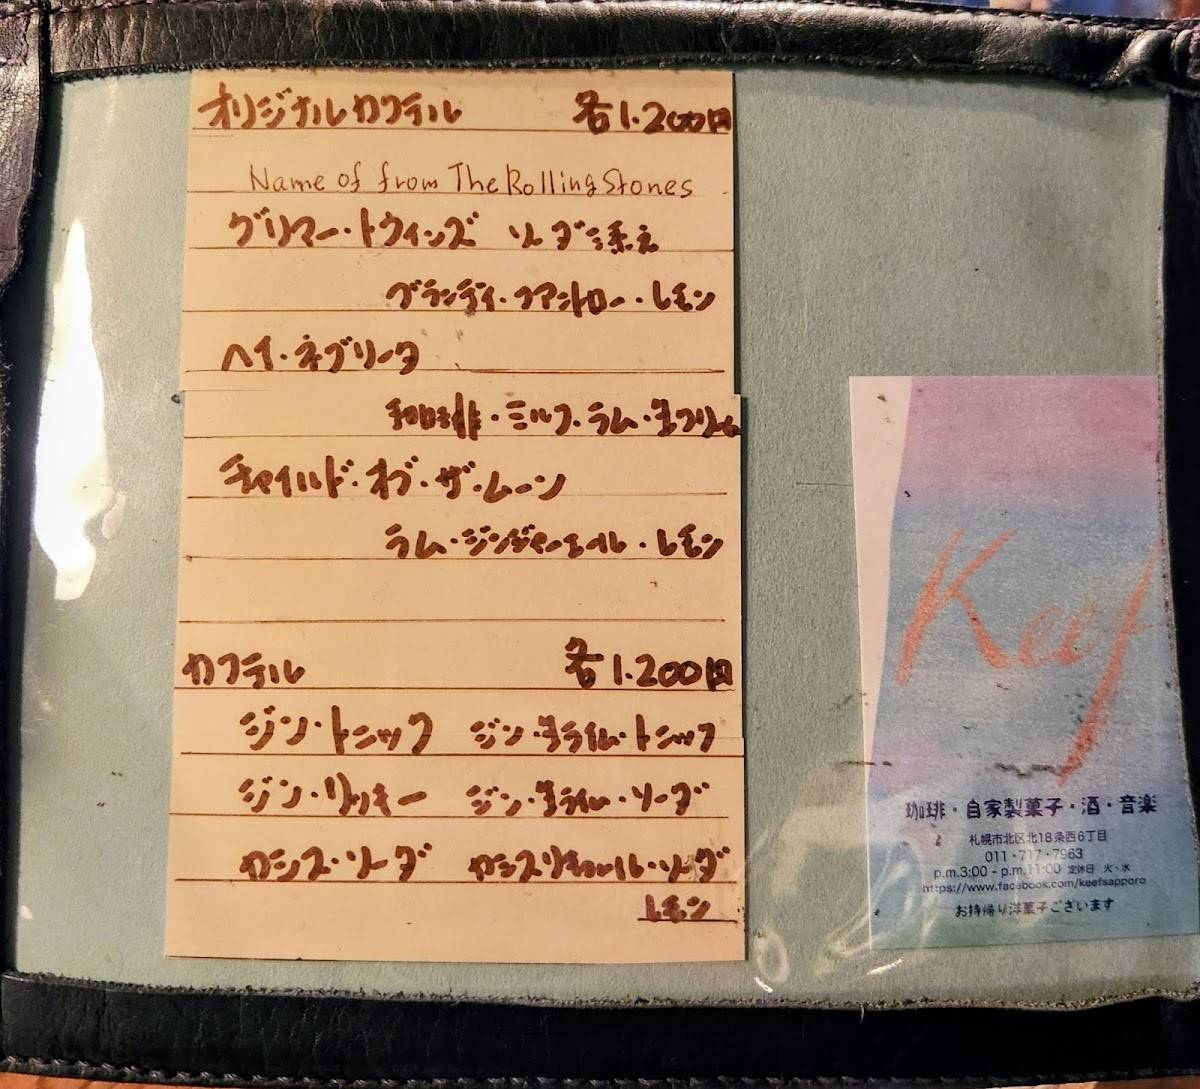 オリジナルカクテル 各1.200円
Name of from The Rolling Stones
グリマー・トウィンズ ソーダ添え
ブランデイ・コアントロー・レモン
ヘイ・ネグリータ
珈琲・ミルク・ラム・生クリーム
チャイルド・オブ・ザ・ムーン
ラム・ジンジャーエール・レモン
カクテル 各1.200円
ジン・トニック ジン・生ライム・トニック
ジン・リッキー ジン・生ライム・ソーダ
カシス・ソーダ カシスリキュール・ソーダ
レモン
Keef
珈琲・自家製菓子・酒・音楽
札幌市北区北18条西6丁目
011・717・7963
p.m.3:00 - p.m.11:00 定休日 火・水
https://www.facebook.com/keefsapporo
お持帰り洋菓子ございます